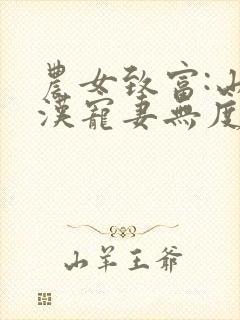 農女致富:山
漢寵妻無度
山羊王爺